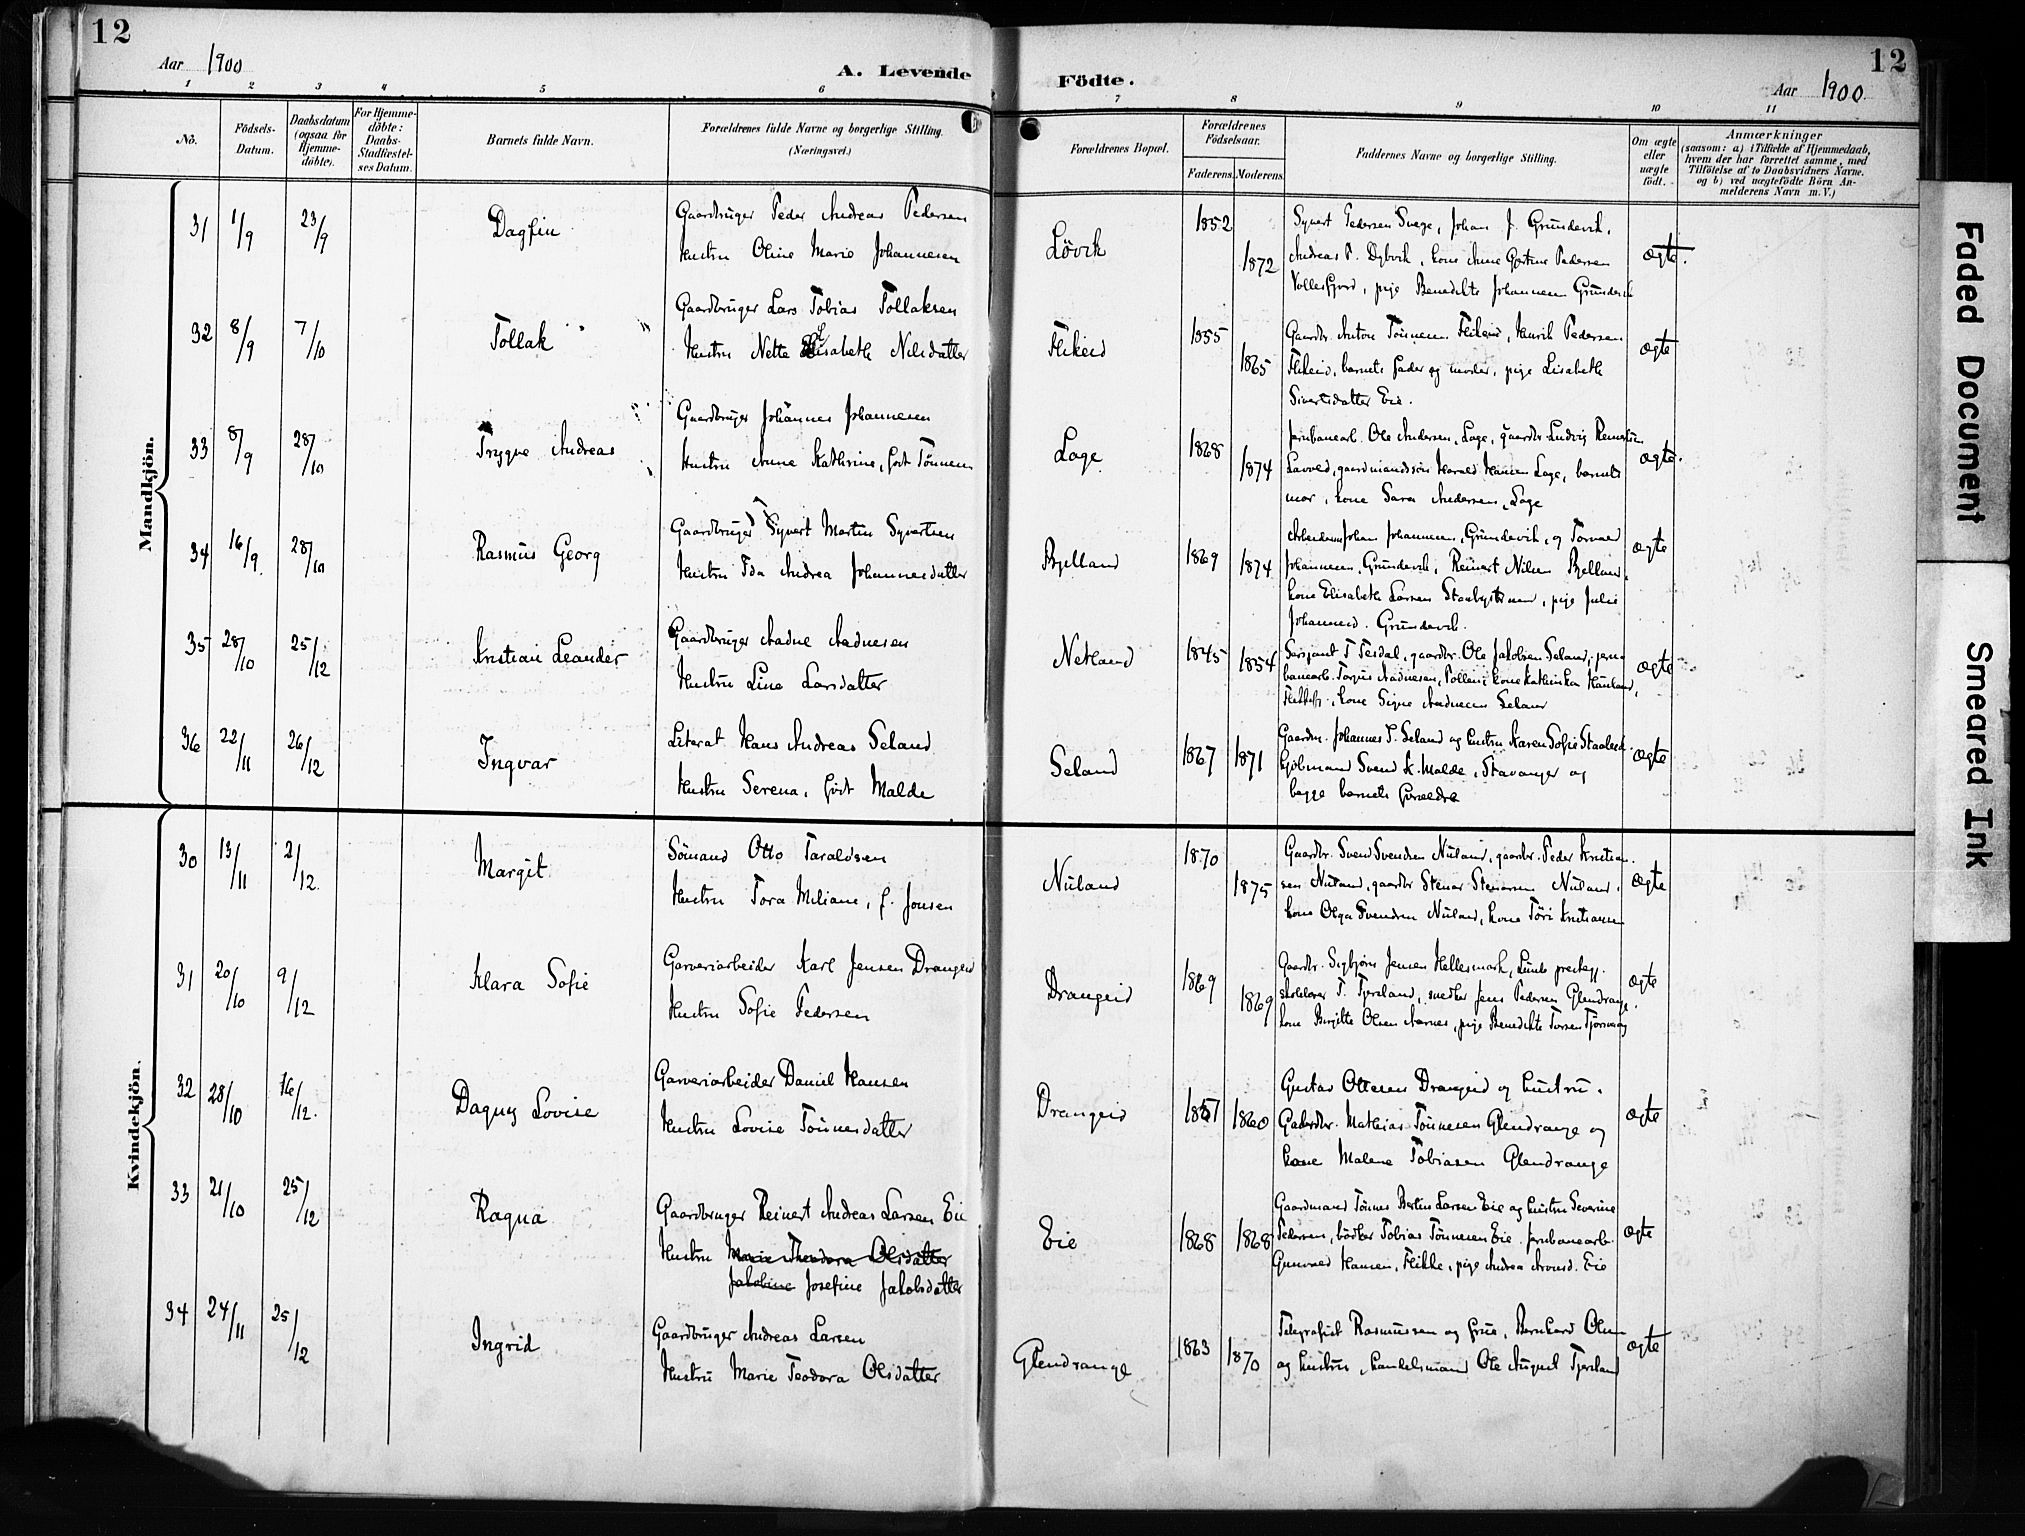 12
Aar 1900
A. Levende
Födte.
12
Aar 1900
1 2 3 4 5 6 7 8 9 10 11
No.
Födsels-
Datum.
Daabsdatum
(ogsaa for
Hjemme-
döbte).
For Hjemme-
döbte:
Daabs-
Stadfæstel-
ses Datum.
Barnets fulde Navn.
Forældrenes fulde Navne og borgerlige Stilling.
(Næringsvei.)
Forældrenes Bopæl.
Forældrenes
Födselsaar.
Faderens. Moderens.
Faddernes Navne og borgerlige Stilling.
Om ægte
eller
uægte
födt.
Anmærkninger
(saasom: a) i Tilfælde af Hjemmedaab,
hvem der har forrettet samme, med
Tilföielse af to Daabsvidners Navne.
og b) ved uægtefödte Börn An-
melderens Navn m. V.)
Mandkjön.
31 1/9 23/9 Dagfin
Gaardbruger Peder Andreas Pedersen
Hustru Oline Marie Johannesen
Lövik 1852 1872
Syvert Pedersen Svege, Johan J. Grundevik,
Andreas P. Dybvik, kone Anne Gertine Pedersen
pige Benedikte Johannesen Grundevik
ægte.
32 8/9 7/10 Tollak
Gaardbruger Lars Tobias Tollaksen
Hustru Nette Elisabeth Nilsdatter
Flikeid 1855 1865
Gaardbr. Anton Tönnesen Flikeid, Henrik Pedersen
Flikeid, barnets fader og moder, pige Lisabeth
Sivertsdatter Eie.
ægte
33 8/9 28/10 Trygve Andreas
Gaardbruger Johannes Johannesen
Hustru Anne Kathrine, födt Tönnesen
Loge 1868 1874
Jernbanearb. Ole Andersen, Loge, gaardbr. Ludvig
gaardmandssön Harald Hansen Loge, barnets
mor, kone Sara Andersen, Loge
ægte.
34 16/9 28/10 Rasmus Georg
Gaardbruger Syvert Martin Syvertsen
Hustru Ida Andrea Johannesdatter
Bjelland 1869 1874
Johan Johannesen, Grundevik, og
Johannesen, Grundevik, Reinert Nilsen Bjelland,
kone Elisabeth Larsen pige Julie
Johannesd. Grundevik.
ægte
35 28/10 25/12 Kristian Leander
Gaardbruger Aadne Aadnesen
Hustru Line Larsdatter
Netland 1845 1854
Sersjant T. Tesdal, gaardbr. Ole Jakobsen Seland, jern-
banearb. Torjus Aadnesen, kone Kathinka
kone Signe Aadnesen Seland
ægte
36 22/11 26/12 Ingvar
Literat Hans Andreas Seland
Hustru Serena, födt Malde
Seland 1867 1871
Gaardm. Johannes T. Seland og hustru Karen Sofie
Svend K. Malde, Stavanger og
begge barnets forældre
ægte
Kvindekjön.
30 13/11 2/12 Margit
Sömand Otto Taraldsen
Hustru Tora Miliane, f. Jonsen
Nuland 1870 1875
Gaardbr. Svend Svendsen Nuland, gaardbr. Peder Kristian-
sen Nuland, gaardbr Stener Stenersen Nuland,
kone Olga Svendsen Nuland, kone Töri Kristiansen
ægte
31 20/10 9/12 Klara Sofie
Garveriarbeider Karl Jensen Drangeid
Hustru Sofie Pedersen
Drangeid 1869 1869
Gaardbr. Sigbjörn Jensen Hellesmark, Lunds prestegj.
skolelærer T. Tjersland, snedker Jens Pedersen Glendrange,
kone Birgitte Olsen Aarnes, pige Benedikte Torsen
ægte
32 28/10 16/12 Dagny Lovise
Garveriarbeider Daniel Hansen
Hustru Lovise Tönnesdatter
Drangeid 1857 1860
Gustav Ottesen Drangeid og hustru.
Mathias Tönnesen Glendrange og
kone Malene Tobiasen Glendrange
ægte
33 21/10 25/12 Ragna
Gaardbruger Reinert Andreas Larsen Eie
Hustru Marie Theodora Olsdatter
Jakobine Josefine Jakobsdatter
Eie 1868 1868
Gaardmand Tönnes Bertin Larsen Eie og hustru Severine
Pedersen, bödker Tobias Tönnesen Eie. jernbanearb.
Gunvald Hansen, Flikke, pige Andrea Eie
ægte
34 24/11 25/12 Ingrid
Gaardbruger Andreas Larsen
Hustru Marie Teodora Olsdatter
Glendrange 1863 1870
Telegrafist Rasmussen og frue, Bernhard Olsen
og hustru, handelsmand Ole August Tjersland
ægte
Faded Document
Smeared Ink